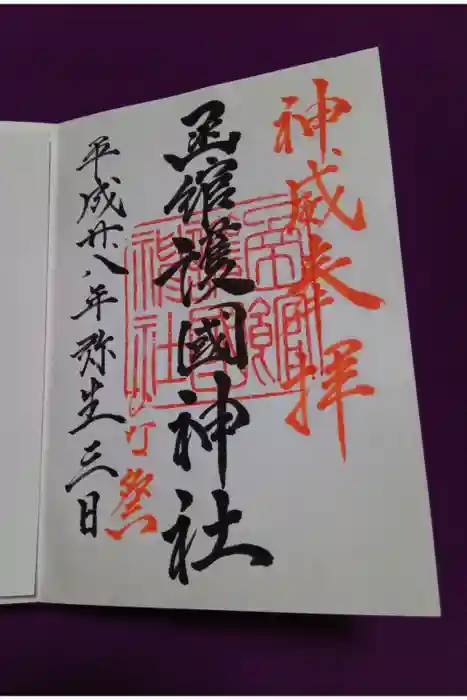 神威奉拝
函館護國神社
函館護國神社
ひな祭
平成廿八年弥生三日